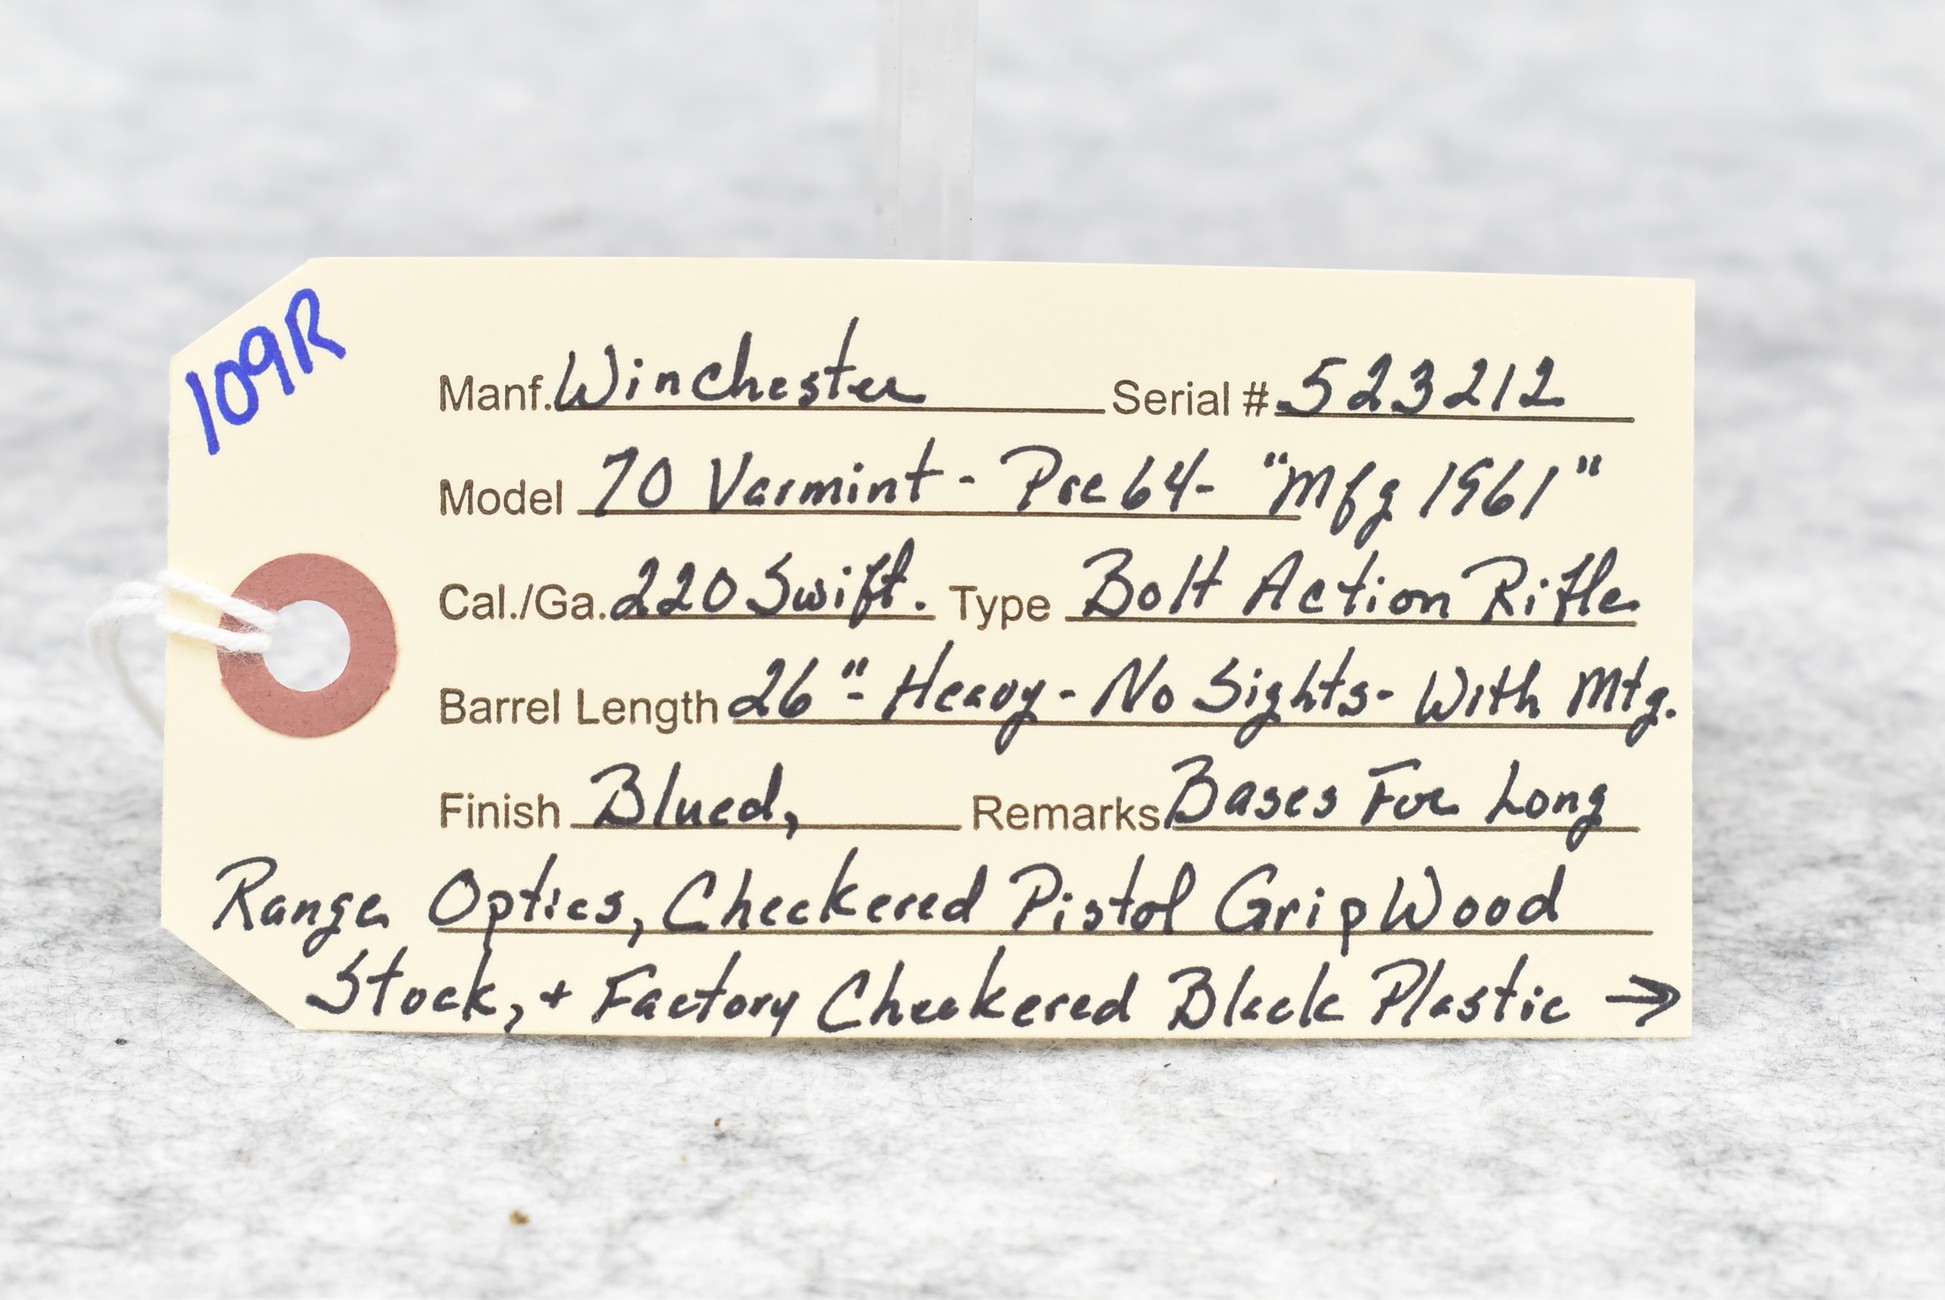 109R
Manf. Winchester Serial # 523212
Model 70 Varmint - Pre 64 - "Mfg 1961"
Cal./Ga. 220 Swift. Type Bolt Action Rifle
Barrel Length 26" - Heavy - No Sights - With Mtg.
Finish Blued, Remarks Bases For Long
Range Optics, Checkered Pistol Grip Wood
Stock, + Factory Checkered Black Plastic →